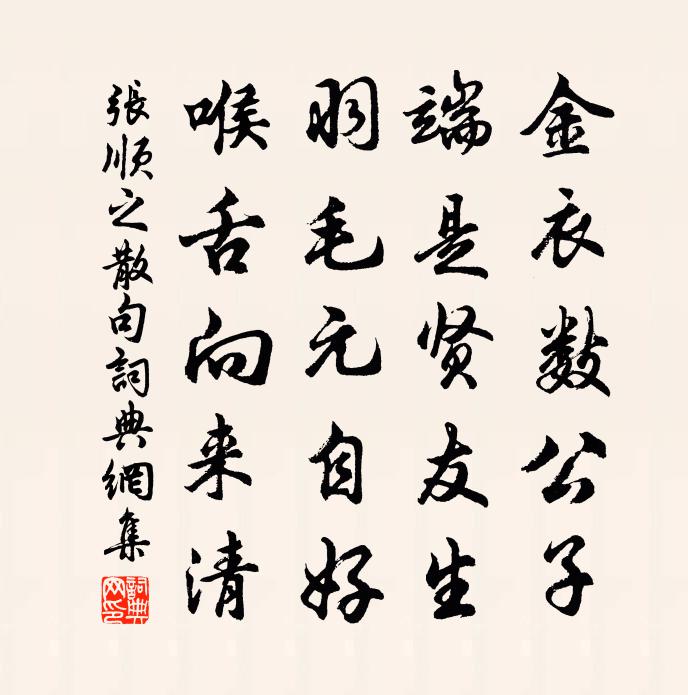 金衣数公子
端是贤友生
羽毛元自好
喉舌向来清
張順之散句詞典網集
詞典網印